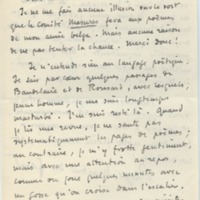 Je ne me fais aucune illusion sur le sort
que le Comité Mesures fera aux poèmes
de mon amie belge. Mais aucune raison
de ne pas tenter la chance. Merci donc !
Je n'entends rien au langage poétique.
Je sais par cœur quelques passages de
Baudelaire et de Ronsard, avec lesquels,
jeune homme, je me suis longtemps
masturbé. J'en suis resté là. Quand
je lis une revue, je ne saute pas
systématiquement les pages de poèmes ;
au contraire, je m'y frotte gentiment,
mais avec une attention au repos,
comme on joue quelques minutes avec
un gosse qu'on croise dans l'escalier.